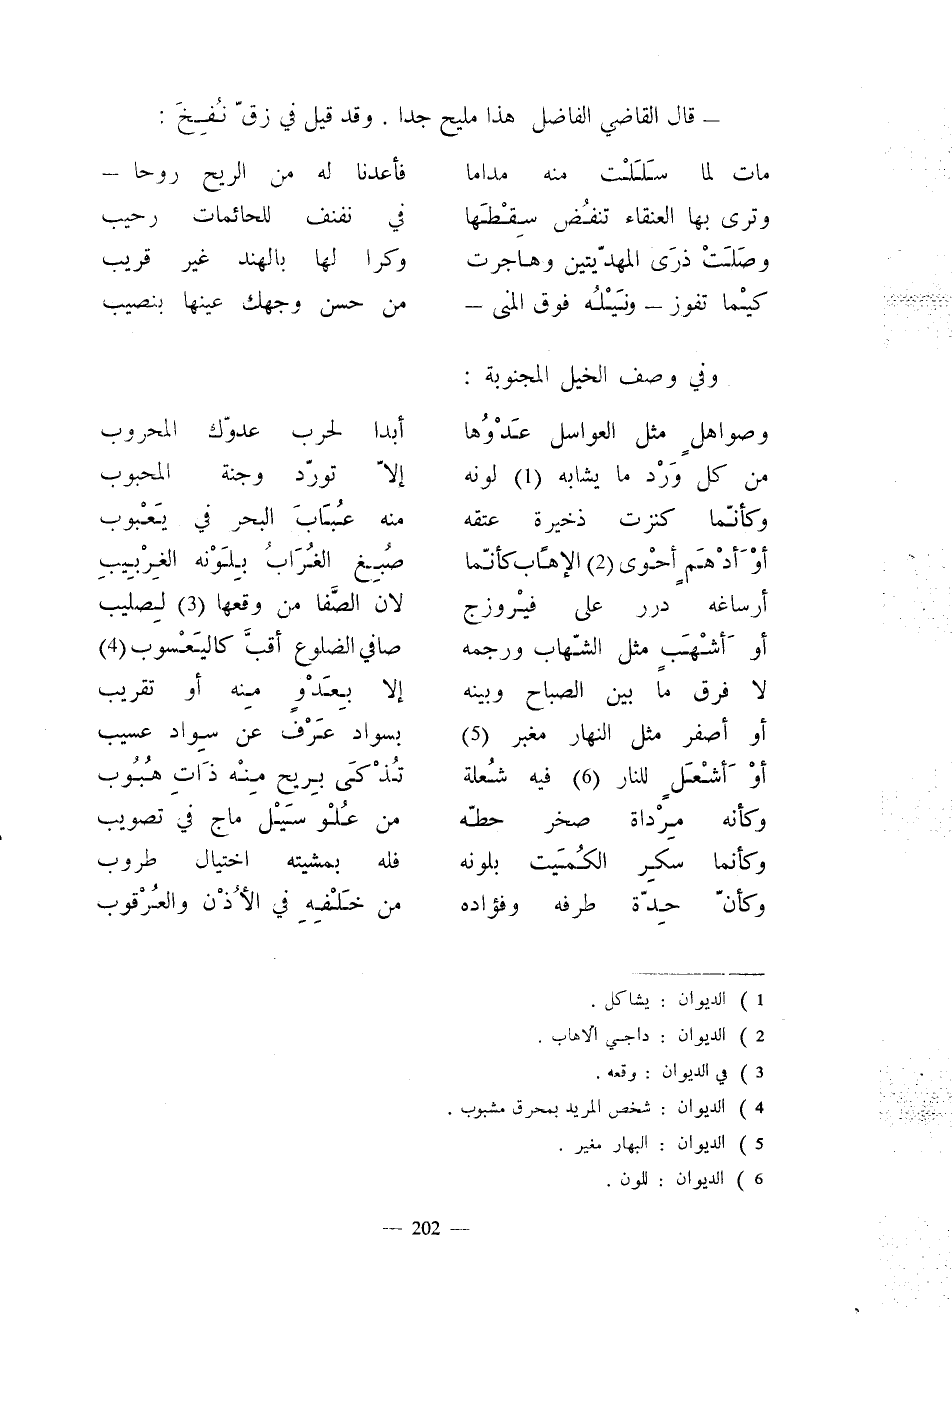 — قال القاضي الفاضل هذا مليح جدا . وقد قيل في زقّ نُفِخَ :
مات لما سَلَلْت منه مداما فأعدنا له من الريح روحا —
وترى بها العنقاء تنفُض سِقْطَها في نفنف للحائمات رحيب
وصَلَتْ ذرَى المهديّتين وهاجرت وكرا لها بالهند غير قريب
كيْما تفوز — ونَيْلُه فوق المنى — من حسن وجهك عينها بنصيب
وفي وصف الخيل المجنوبة :
وصواهلٍ مثل العواسل عَدْوُها أبدا لحرب عدوّك المحروب
من كل وَرْد ما يشابه (1) لونه إلاّ تورّد وجنة المحبوب
وكأنّما كنزت ذخيرة عتقه منه عُبَابَ البحر في يَعْبوب
أوْ أدْهَمٍ أحْوى (2) الإهاب كأنّما صُبِغ الغُرَابُ بِلَوْنه الغِرْبِيبِ
أرساغه درر على فيْروزج لان الصَّفا من وقعها (3) لِصليب
أو أشْهَبٍ مثل الشّهاب ورجمه صافي الضلوع أقبَّ كاليَعْسوب (4)
لا فرق ما بين الصباح وبينه إلا بِعَدْوٍ مِنه أو تقريب
أو أصفر مثل النهار مغبر (5) بسواد عَرْف عن سِواد عسيب
أوْ أشْعَلٍ للنار (6) فيه شُعلة تُذْكَى بِريح مِنْه ذَاتِ هُبُوب
وكأنه مِرْداة صخر حطّه من عُلْو سَيْل ماج في تصويب
وكأنما سكِر الكُمَيت بلونه فله بمشيته اختيال طروب
وكأنّ حِدّة طرفه وفؤاده من خَلْفِهِ في الأُذْن والعُرْقوب
1 ) الديوان : يشاكل .
2 ) الديوان : داجي الاهاب .
3 ) في الديوان : وقعه .
4 ) الديوان : شخص المريد بمحرق مشبوب .
5 ) الديوان : البهار مغير .
6 ) الديوان : للون .
— 202 —